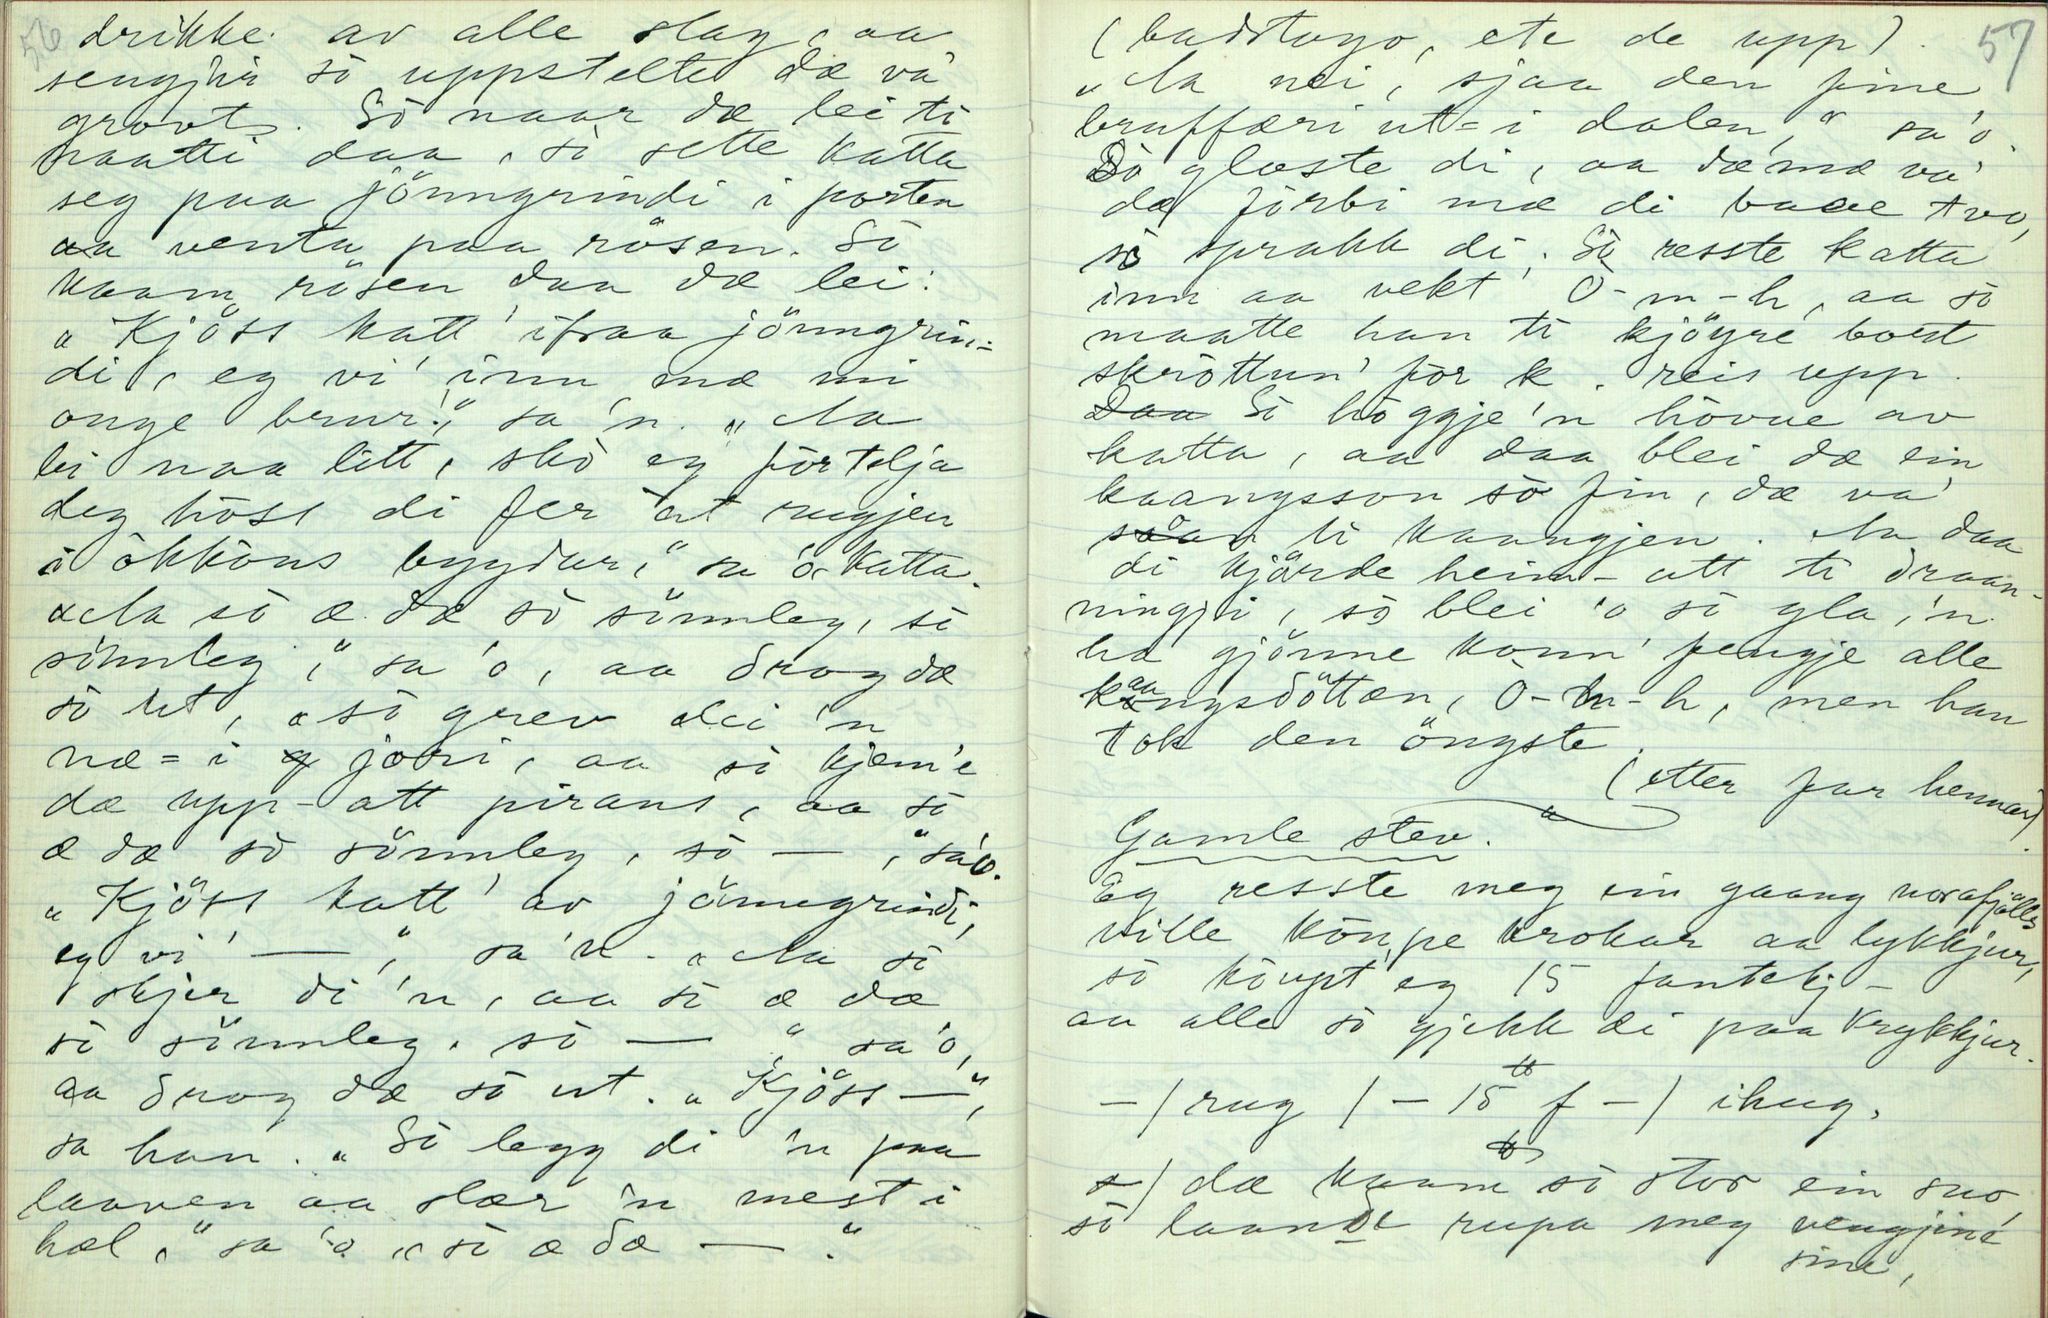 56
drikke av alle slag, aa
sengjir sò uppstelte dæ va'
grovt. Sò naar dæ lei ti
naatti daa, sò sette katta
seg paa jönngrindi i porten
aa venta paa rösen. Sò
kaam rösen daa dæ lei:
„Kjöss katt' ifraa jönngrin-
di, eg vi' inn mæ mi
onge brur!," sa 'n. „Aa
bi naa litt, skò eg förtelja
deg höss di fer åt rugjen
i òkkòns bygdur," sa 'o katta.
„Aa sò æ dæ sò sönnleg, sò
sönnleg," sa 'o, aa drog dæ
sò ut, „sò grev dei 'n
næ=i jori, aa sò kjem 'e
dæ upp-att pirans, aa sò
æ dæ sò sönnleg, sò —," sa'o.
„Kjöss katt' av jönngrindi,
eg vi' —," sa 'n. „Aa sò
skjer di 'n, aa sò æ dæ
sò sönnleg, sò —" sa 'o,
aa drog dæ sò ut. „Kjöss —",
sa han. „Sò legg di 'n paa
laaven aa slær 'n mest i
hæl," sa 'o „sò æ dæ —."
57
(badstugo, ete de upp).
„Aa nei, sjaa den fine
bruffæri ut=i dalen," sa 'o.
Dò gloste di, aa dæmæ va'
dæ förbi mæ di baee tvo,
sò sprakk di. Sò resste katta
inn aa vekt' Ö-m-h, aa sò
maatte han ti kjöyre bort
skròttun' för k. reis upp.
Sò höggje 'n hövue av
katta, aa daa blei dæ ein
kaangsson sò fin, dæ va'
son ti kaangjen. Aa daa
di kjörde heim-att ti draan-
ningji, sò blei 'o sò gla, 'n
ha' gjönne konn' fengje alle
kaangsdöttan, Ö-m-h, men han
tok den öngste.
(etter far hennar)
Gamle stev.
Eg resste meg ein gaang norafjälls
ville köupe krokar aa lykkjur,
sò köupt' eg 15 fantekj-
aa alle sò gjekk di paa krykkjur.
-/ rug / - 15 f -/ ihug.
/ dæ kaam sò stor ein sno,
sò laande rupa meg vengjine
sine,